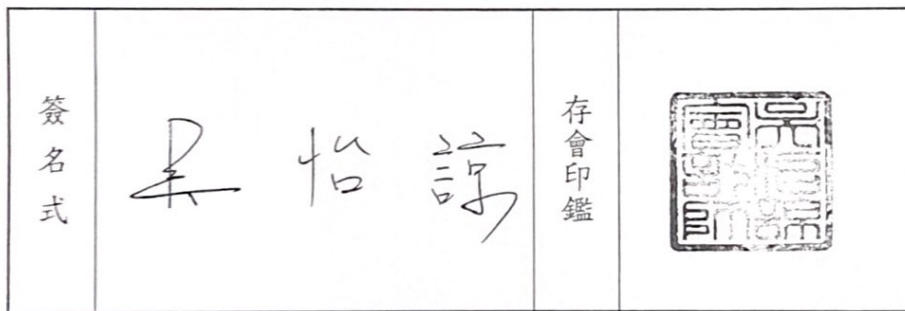 簽名式
吳怡諒
存會印鑑
吳怡諒會計師